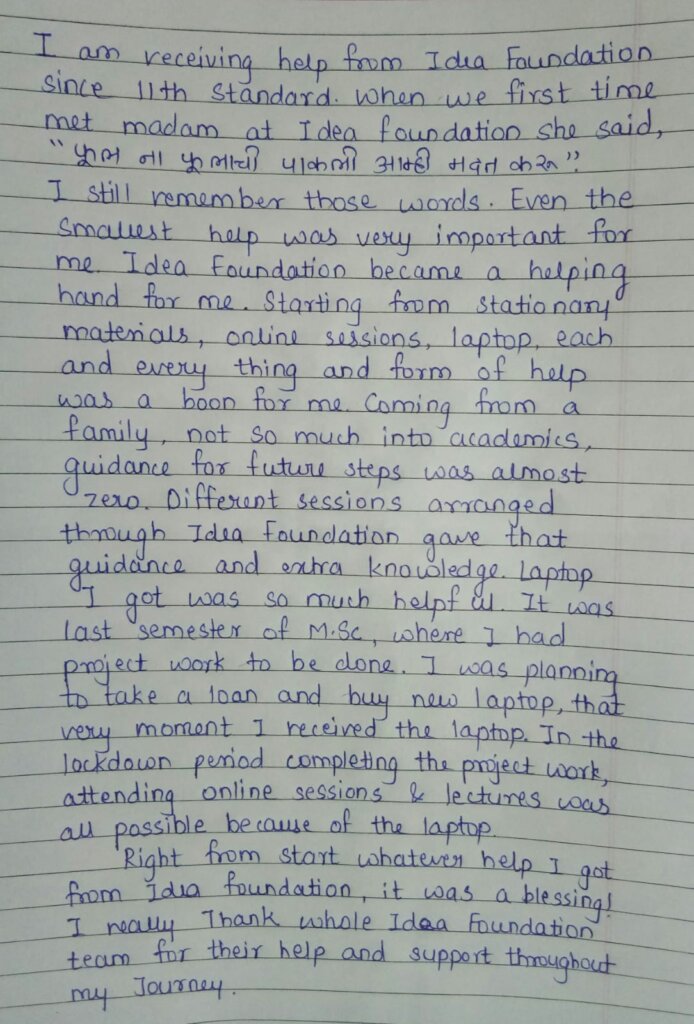 I am receiving help from Idea Foundation
since 11th standard. When we first time
met madam at Idea foundation she said,
"फूल ना फूलाची पाकली आम्ही मदत करू".
I still remember those words. Even the
smallest help was very important for
me. Idea Foundation became a helping
hand for me. Starting from stationary
materials, online sessions, laptop, each
and every thing and form of help
was a boon for me. Coming from a
family, not so much into academics,
guidance for future steps was almost
zero. Different sessions arranged
through Idea Foundation gave that
guidance and extra knowledge. Laptop
I got was so much helpful. It was
last semester of M.Sc, where I had
project work to be done. I was planning
to take a loan and buy new laptop, that
very moment I received the laptop. In the
lockdown period completing the project work,
attending online sessions & lectures was
all possible because of the laptop.
Right from start whatever help I got
from Idea foundation, it was a blessing!
I really Thank whole Idea Foundation
team for their help and support throughout
my Journey.